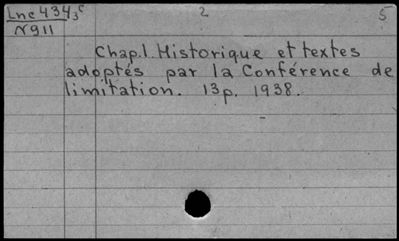 Lnc 434₃c 2 5
N911
Chap.1. Historique et textes
adoptés par la Conférence de
limitation. 13p. 1938.